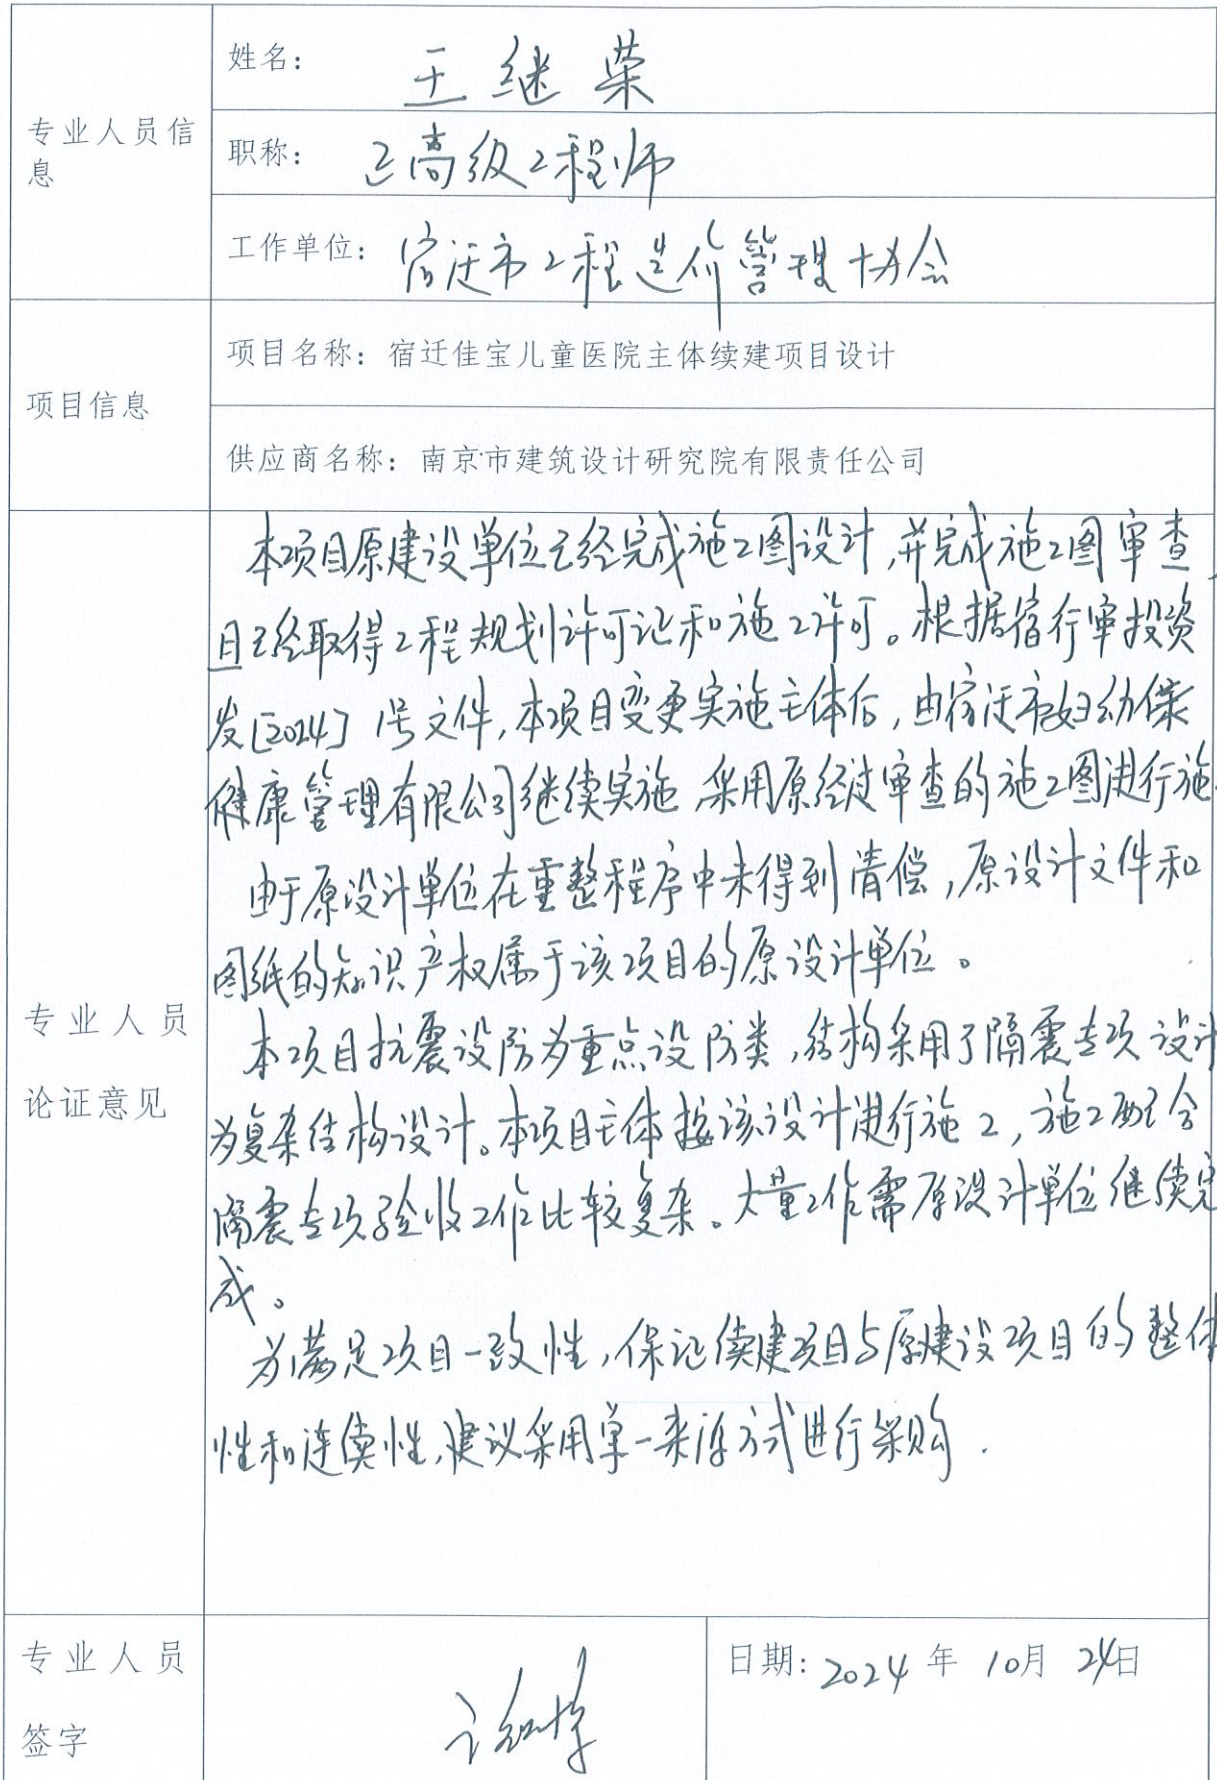 专业人员信息
姓名：王继荣
职称：正高级工程师
工作单位：宿迁市工程造价管理协会
项目信息
项目名称：宿迁佳宝儿童医院主体续建项目设计
供应商名称：南京市建筑设计研究院有限责任公司
专业人员
论证意见
本项目原建设单位已经完成施工图设计，并完成施工图审查，
且已经取得工程规划许可证和施工许可。根据宿行审投资
发[2024] 1号文件，本项目变更实施主体后，由宿迁市妇幼保
健康管理有限公司继续实施，采用原经过审查的施工图进行施
由于原设计单位在重整程序中未得到清偿，原设计文件和
图纸的知识产权属于该项目的原设计单位。
本项目抗震设防为重点设防类，结构采用了隔震专项设计
为复杂结构设计。本项目主体按该设计进行施工，施工配合
隔震专项验收工作比较复杂。大量工作需原设计单位继续完
成。
为满足项目一致性，保证续建项目与原建设项目的整体
性和连续性，建议采用单一来源方式进行采购.
专业人员
签字
日期：2024年10月24日